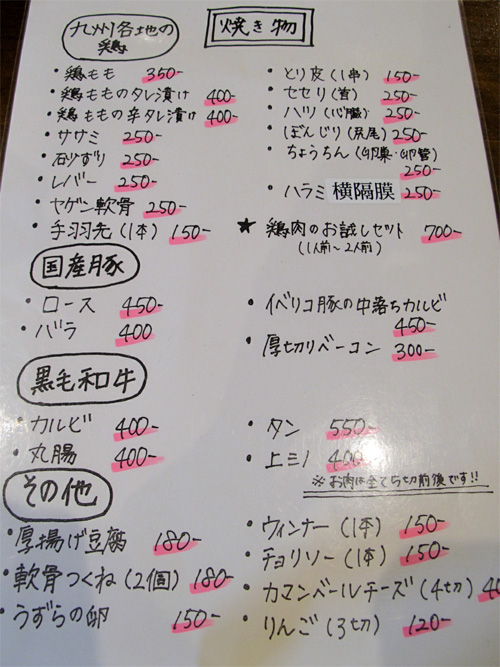 焼き物
九州各地の
鶏
・鶏もも 350-
・鶏もものタレ漬け 400-
・鶏ももの辛タレ漬け 400-
・ササミ 250-
・砂ずり 250-
・レバー 250-
・ヤゲン軟骨 250-
・手羽先(1本) 150-
・とり皮(1串) 150-
・セセリ(首) 250-
・ハツ(心臓) 250-
・ぼんじり(尻尾) 250-
・ちょうちん(卵巣・卵管)
250-
・ハラミ 横隔膜 250-
★ 鶏肉のお試しセット 700-
(1人前〜2人前)
国産豚
・ロース 450-
・バラ 400
・イベリコ豚の中落ちカルビ
450-
・厚切りベーコン 300-
黒毛和牛
・カルビ 400-
・丸腸 400-
・タン 550-
・上ミノ 400-
※お肉は全て5切前後です!!
その他
・厚揚げ豆腐 180-
・軟骨つくね(2個) 180-
・うずらの卵 150-
・ウィンナー(1本) 150-
・チョリソー(1本) 150-
・カマンベールチーズ(4切)
・りんご(3切) 120-